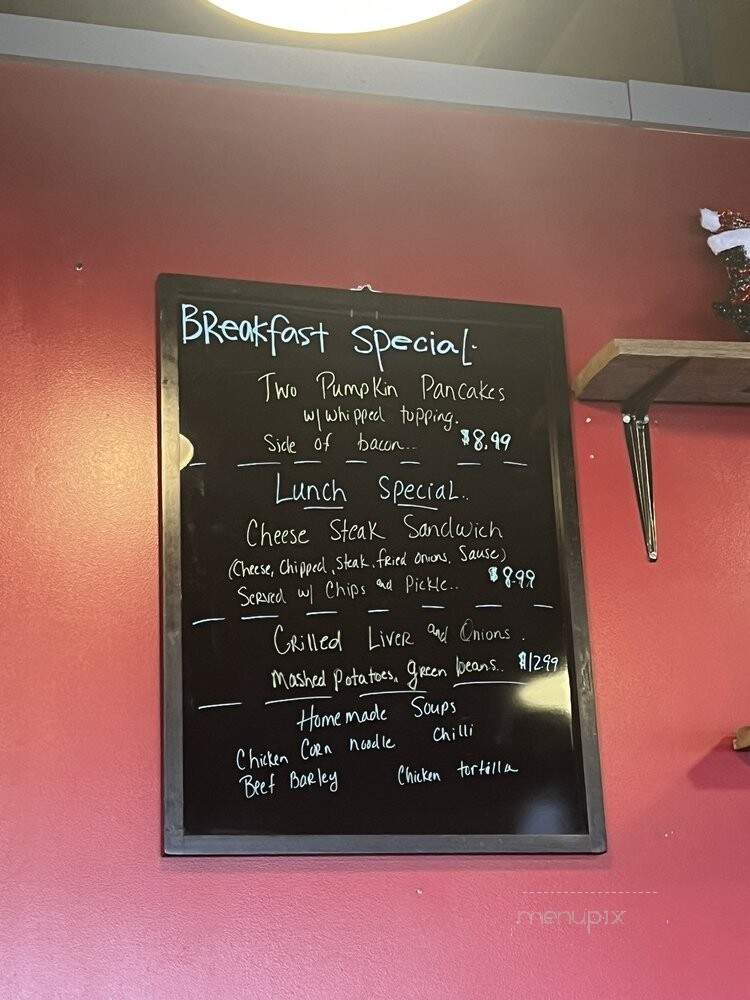 Breakfast Special.
Two Pumpkin Pancakes
w/ whipped topping.
Side of bacon... $8.99
Lunch Special..
Cheese Steak Sandwich
(Cheese, Chipped, Steak, fried onions, Sause)
Served w/ Chips and Pickle.. $8.99
Grilled Liver and Onions.
Mashed potatoes, green beans.. $12.99
Homemade Soups
Chicken Corn noodle Chilli
Beef Barley Chicken tortilla
menupix